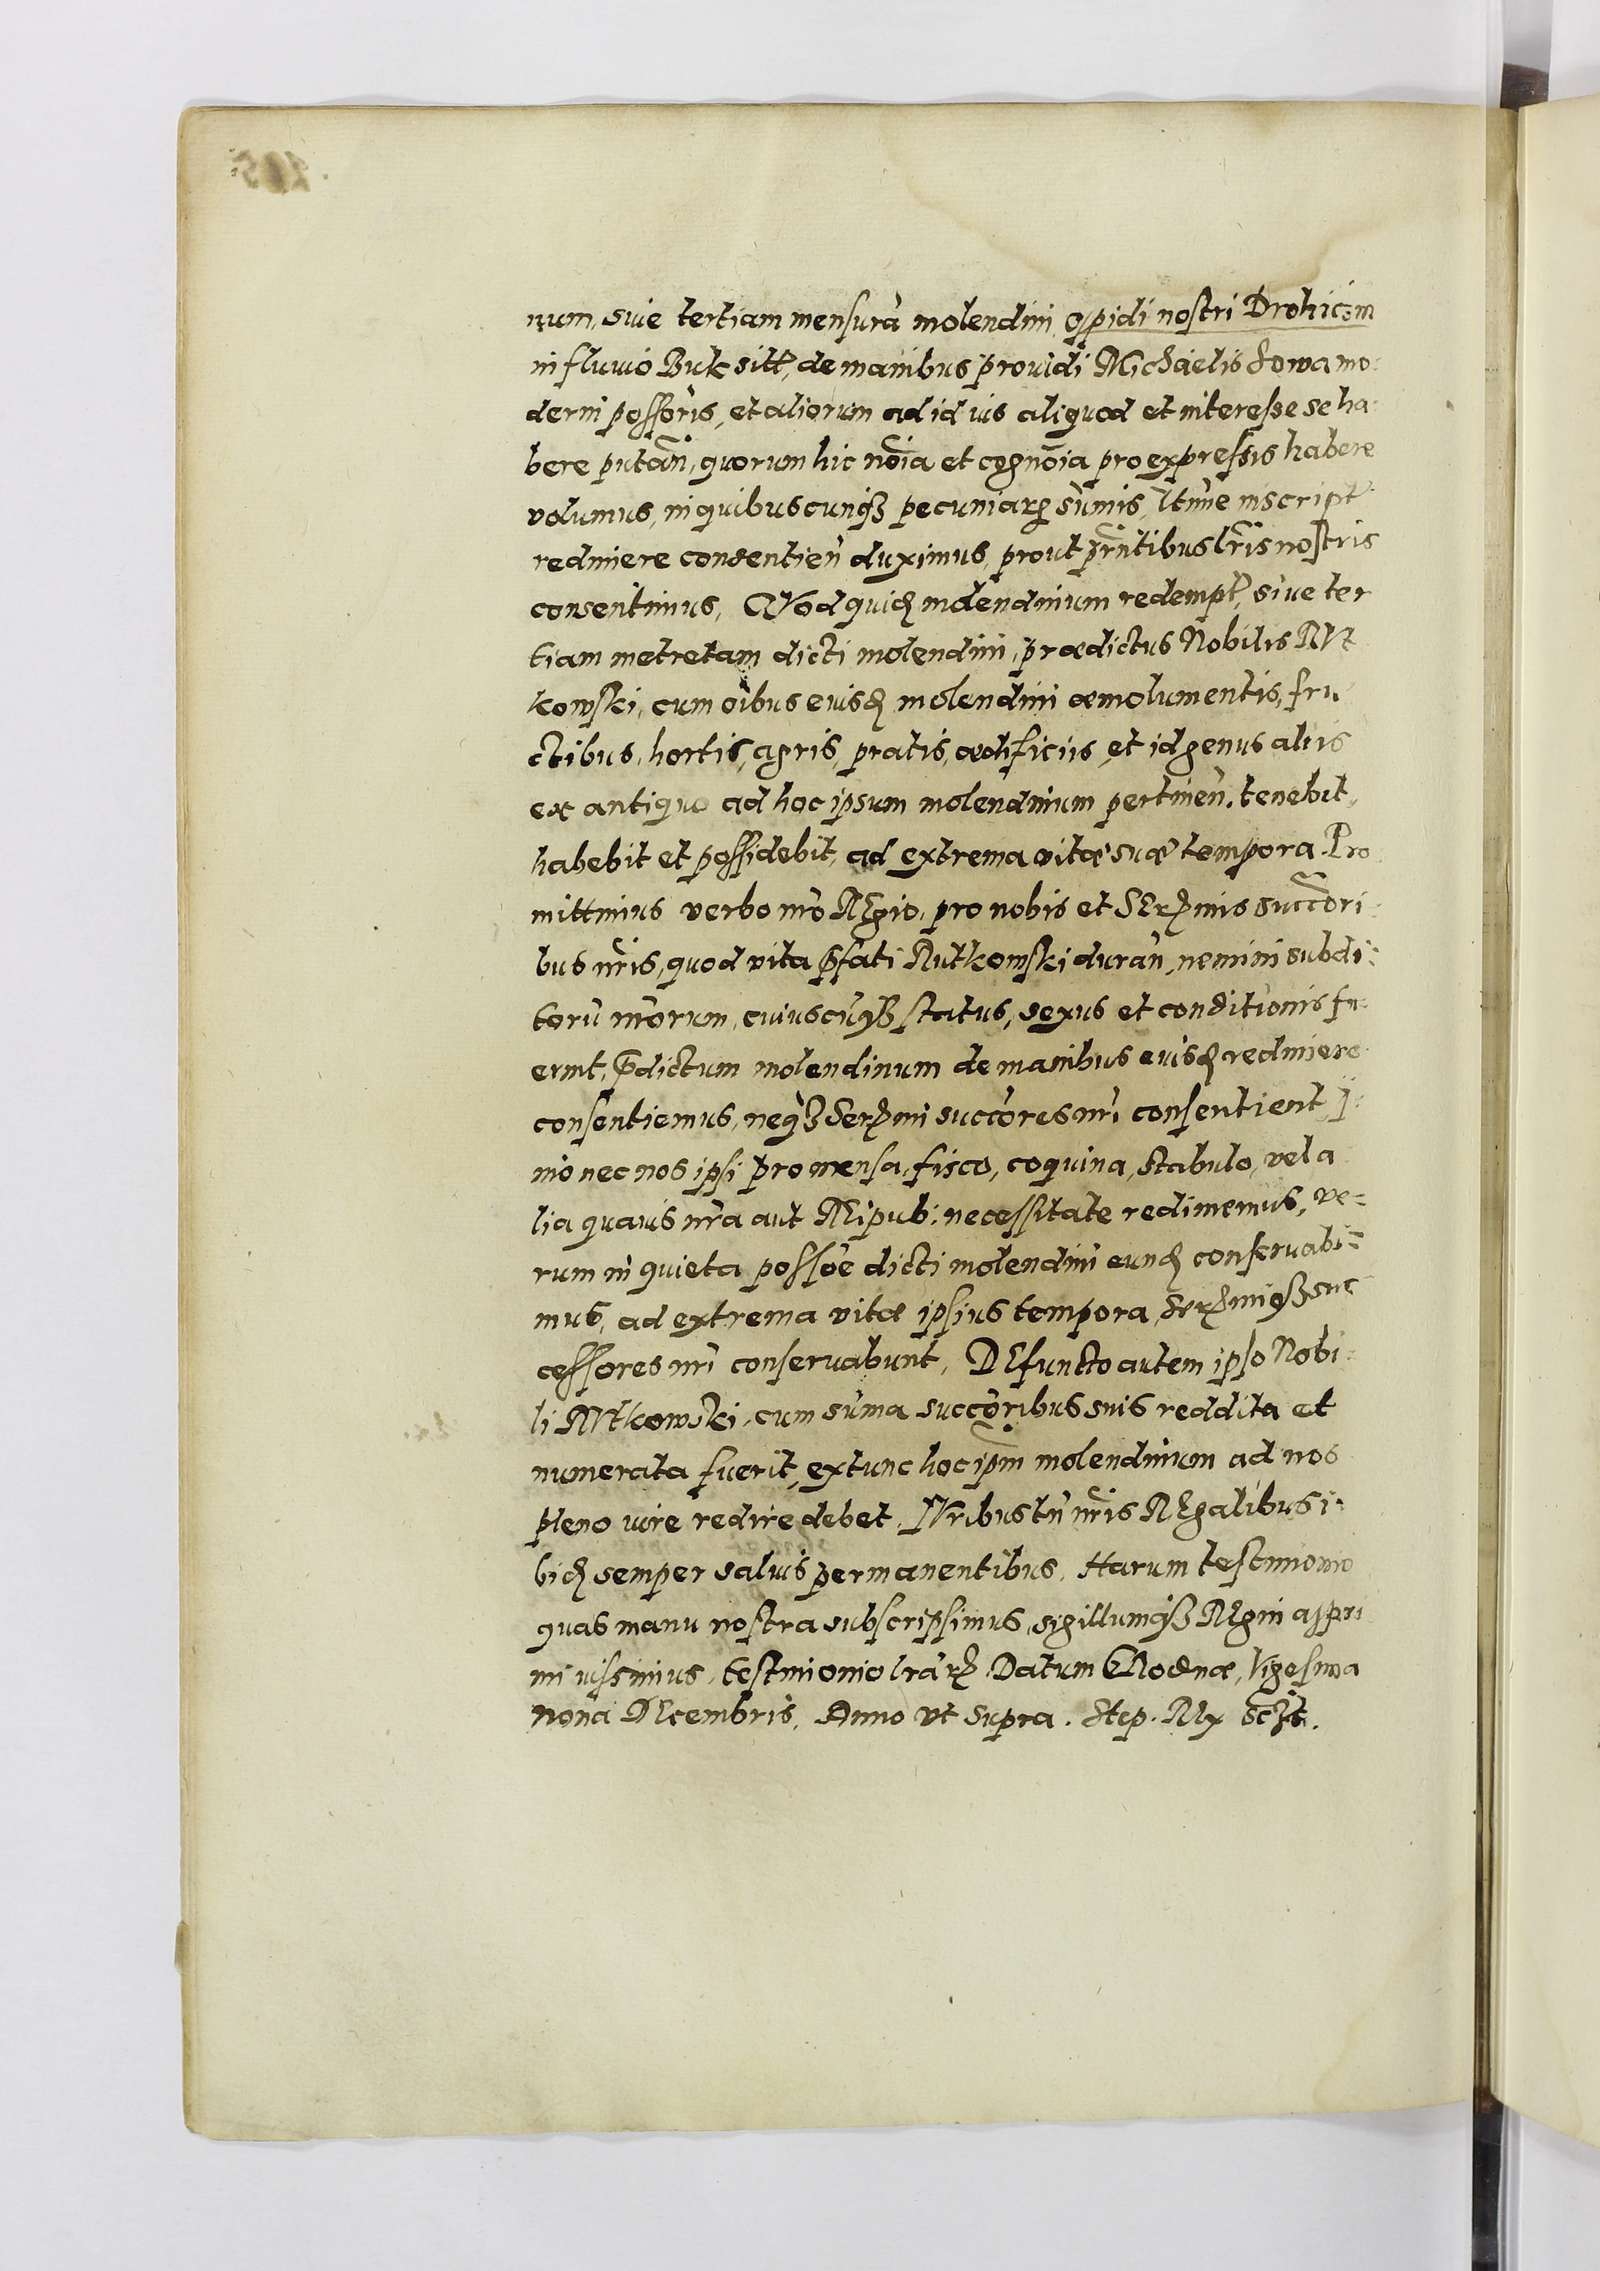 num, siue tertiam mensurã molendini oppidi nostri Drohicen
in fluuio Buk sitt, de manibus prouidi Michaelis Sowa mo-
derni possoris, et aliorum ad id ius aliquod et interesse se ha-
bere putañ, quorum hic noīa et cognoīa pro expressis habere
volumus, in quibuscunq3 pecuniarꝝ sūmis, lt̄ime inscript
redimere consentieñ duximus, prout pn̄tibus lr̄is nostris
consentimus, Quod quidẽ molendinum redempt, siue ter
tiam metretam dicti molendini, prædictus Nobilis Rut
kowski, cum oībus eiusd molendini æmolumentis, fru
ctibus, hortis, agris, pratis, ædificiis, et id genus aliis
ex antiquo ad hoc ipsum molendinum pertineñ, tenebit,
habebit et possidebit, ad extrema vitæ suæ tempora. Pro
mittimus verbo nr̄o Regio, pro nobis et Serꝝmis succori-
bus nr̄is, quod vita p̄fati Rutkowski durañ, nemini subdi-
torũ nr̄orum, cuiuscũq3 status, sexus et conditionis fu-
erint, p̄dictum molendinum de manibus eiusd redimere
consentiemus, neq3 Serꝝmi succores nr̄i consentient, i-
mo nec nos ipsi pro mensa, fisco, coquina, stabulo, vel a
lia quauis nr̄a aut Reipub: necessitate redimemus, ve-
rum in quieta possoe dicti molendini eund conseruabi-
mus, ad extrema vitæ ipsius tempora, Serꝝmiq3 suc
cessores nr̄i conseruabunt, Defuncto autem ipso Nobi-
li Rutkowski, cum sūma succoribus suis reddita et
numerata fuerit, extunc hoc ipm̄ molendinum ad nos
pleno iure redire debet, Iuribus tñ nr̄is Regalibus i-
bid semper saluis permanentibus. Harum testimonio
quas manu nostra subscripsimus, sigillumq3 Regni appri
mi iussimus, testimonio lr̄arꝝ. Datum Grodnæ, Vigesima
nona Decembris, Anno vt supra. Step. Rex sc̄ſt.